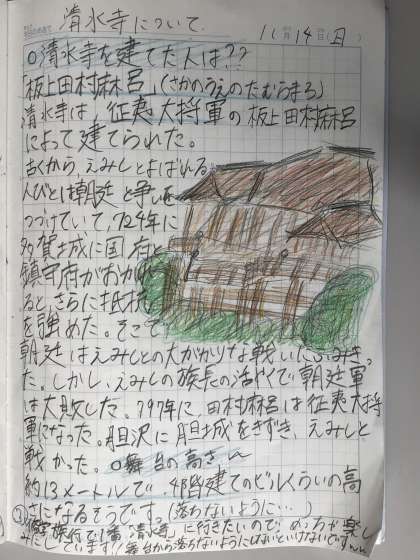 清水寺について。
11月14日(日)
○清水寺を建てた人は??
「板上田村麻呂」(さかのうえのたむらまろ)
清水寺は、征夷大将軍の板上田村麻呂
によって建てられた。
古くから えみしとよばれる
人びとは朝廷と争い
つづけていて、724年に
多賀城に国府と
鎮守府がおかれ
ると、さらに抵抗
を強めた。そこで
朝廷はえみしとの大がかりな戦いにふみきっ
た。しかし、えみしの族長の活やくで朝廷軍
は大敗した。797年に、田村麻呂は征夷大将
軍になった。胆沢に胆城をきずき、えみしと
戦かった。 ○舞台の高さ
約13メートルで、4階建てのビルくらいの高
さになるそうです。(落ちないように…)
修学旅行で1番「清水寺」に行きたいので めっちゃ楽し
みにしています!! 舞台から落ちないようにしないといけないです